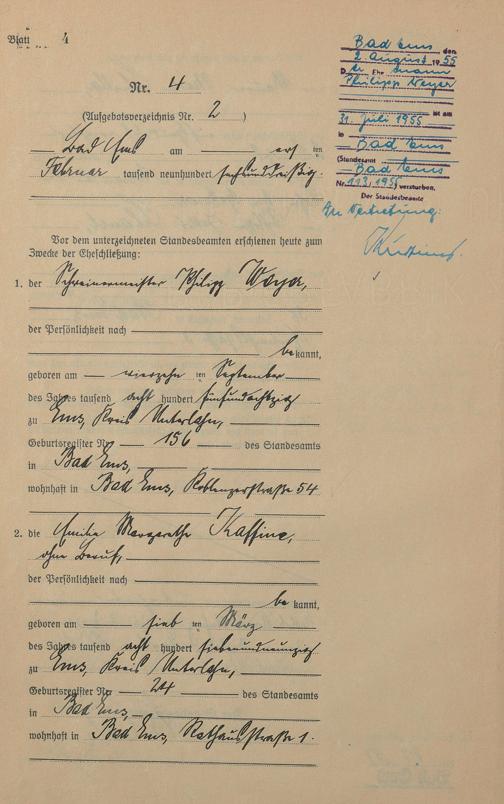 Blatt 4
Nr. 4
(Aufgebotsverzeichnis Nr. 2)
Bad Ems am ersten
Februar tausend neunhundert sechsunddreißig.
Vor dem unterzeichneten Standesbeamten erschienen heute zum
Zwecke der Eheschließung:
1. der Schreinermeister Philipp Weyer,
der Persönlichkeit nach
bekannt,
geboren am vierzehn ten September
des Jahres tausend acht hundert fünfundachtzig
zu Ems, Kreis Unterlahn,
Geburtsregister Nr. 156 des Standesamts
in Bad Ems,
wohnhaft in Bad Ems, Koblenzerstraße 54
2. die Emilie Margarethe
ohne Beruf,
der Persönlichkeit nach
bekannt,
geboren am sieb ten März
des Jahres tausend acht hundert siebenundneunzig
zu Ems, Kreis Unterlahn,
Geburtsregister Nr. 24 des Standesamts
in Bad Ems,
wohnhaft in Bad Ems, Rathausstraße 1.
Bad Ems den
2. August 1955
D Ehemann
Philipp Weyer
ist am
31. Juli 1955
in Bad Ems
(Standesamt
Bad Ems
Nr. 113/1955) verstorben.
Der Standesbeamte
In Vertretung: